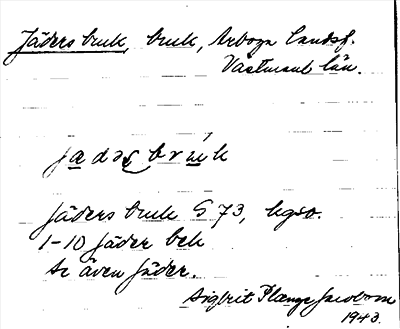 Jäders bruk, bruk, Arboga landsf.
Västmanl. län.
Jäders bruk S 73, kgso.
1-10 Jäder bek
Se även Jäder.
Sigbrit Plænge Jacobson
1943.